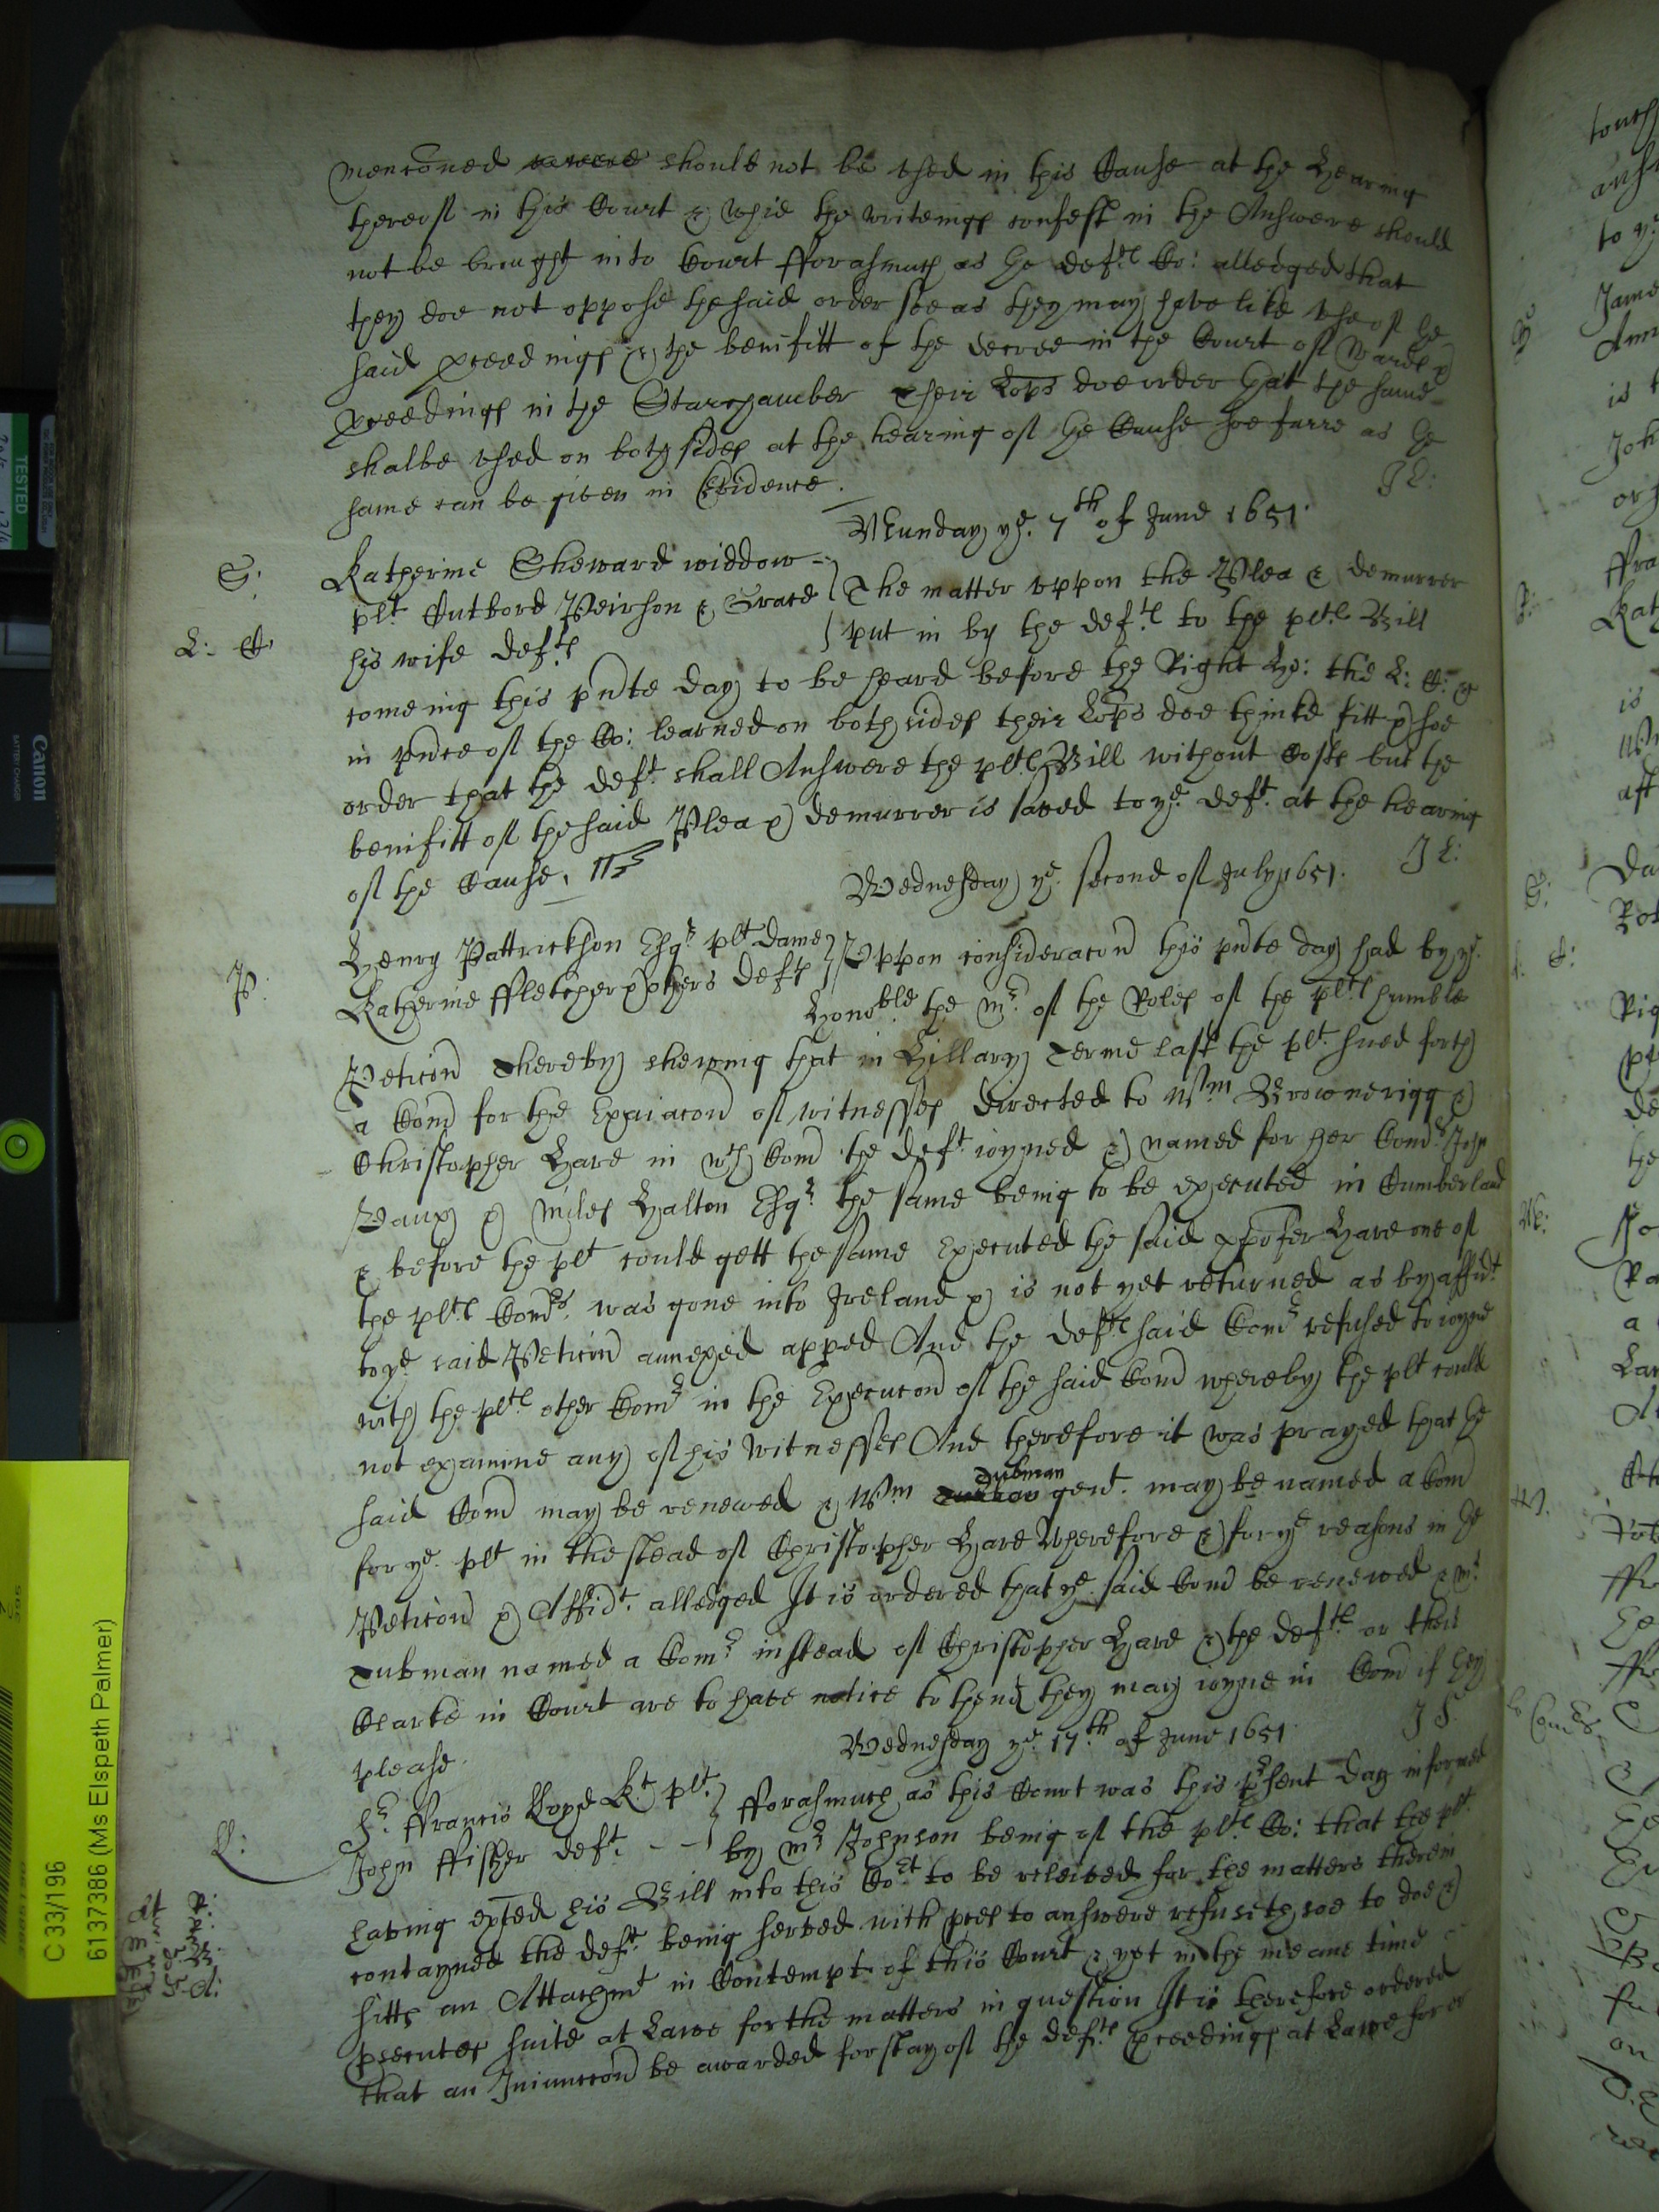 mencõned should not be vsed in this Cause at the Hearing
thereof in this Court & whie the writeings confest in the Answere should
not be brought into Court fforasmuch as the Deftes Co: alledged that
they doe not oppose the said order soe as they may have like vse of the
said pceedings & the benifitt of the decree in the Court of Wards &
pceedings in the Starrchamber Their Lops doe order that the same
shalbe vsed on both sides at the hearing of the Cause soe farre as the
same can be given in Evidence.
J L:
Munday ye. 7th of June 1651.
S:
Katherine Sheward widdow
plt Cutbord Peirson & Grace
his wife Deftes
L: C:
The matter vppon the Plea & demurrer
put in by the deftes to the pltes Bill
comeing this pnte day to be heard before the Right Ho: the L: C: &
in pnce of the Co: learned on both sides their Lops doe thinke fitt & soe
order that the Deft. shall Answere the pltes Bill without Costs but the
benifitt of the said Plea & demurrer is saved to ye. deft. at the hearing
of the Cause.
J L:
Wednesday ye. second of July 1651.
P:
Henry Pattrickson Esqr plt Dame
Katherine ffletcher & others Defts
Vppon consideracõn this pnte day had by ye.
Honoble. the mr. of the Roles of the pltes humble
Peticõn Thereby shewing that in Hillary Terme last the plt. sued forth
a Com̃ for the Exaiacõn of witnesses directed to Wm Brownerigg &
Christopher Hare in wch Com̃ the deft ioyned & named for her Comrs John
Vaux & Miles Halton Esqr the same being to be executed in Cumberland
& before the plt could gett the same Executed the said xpofer Hare one of
the pltes Comrs. was gone into Ireland & is not yet returned as by affidt
to ye. said Peticõn annexed apped And the deftes said Comr refused to ioyne
with the pltes other Comr in the Execucõn of the said Com̃ whereby the plt could
not examine any of his witnesses And therefore it was prayed that the
said Com̃ may be renewed & Wm Tubman gent. may be named a Com̃
for ye. plt in the stead of Christopher Hare Wherefore & for ye reasons in the
Peticõn & Affidt. alledged It is ordered that ye. said Com̃ be renewed & mr
Tubman named a Comr instead of Christopher Hare & the deftes or their
Clarke in Court are to have notice to thend they may ioyne in Com̃ if they
please.
J S.
Wednesday ye. 17th of June 1651
Ll:
Sr. ffrancis Lloyd Kt. plt.
John ffisher deft.
fforasmuch as this Court was this psent day informed
by mr Johnson being of the pltes Co: that the plt.
having exted his Bill into this Cort to be releived for the matters therein
contayned the deft. being served with pces to answere refuseth soe to doe &
sitts an Attachmt in Contempt of this Court & yet in the meane time
psecutes suite at Lawe for the matters in question It is therefore ordered
that an Iniunccõn be awarded for stay of the deftes pceedings at Lawe for
C 33/196
6137386 (Ms Elspeth Palmer)
TESTED
Canon
BATTERY CHARGER